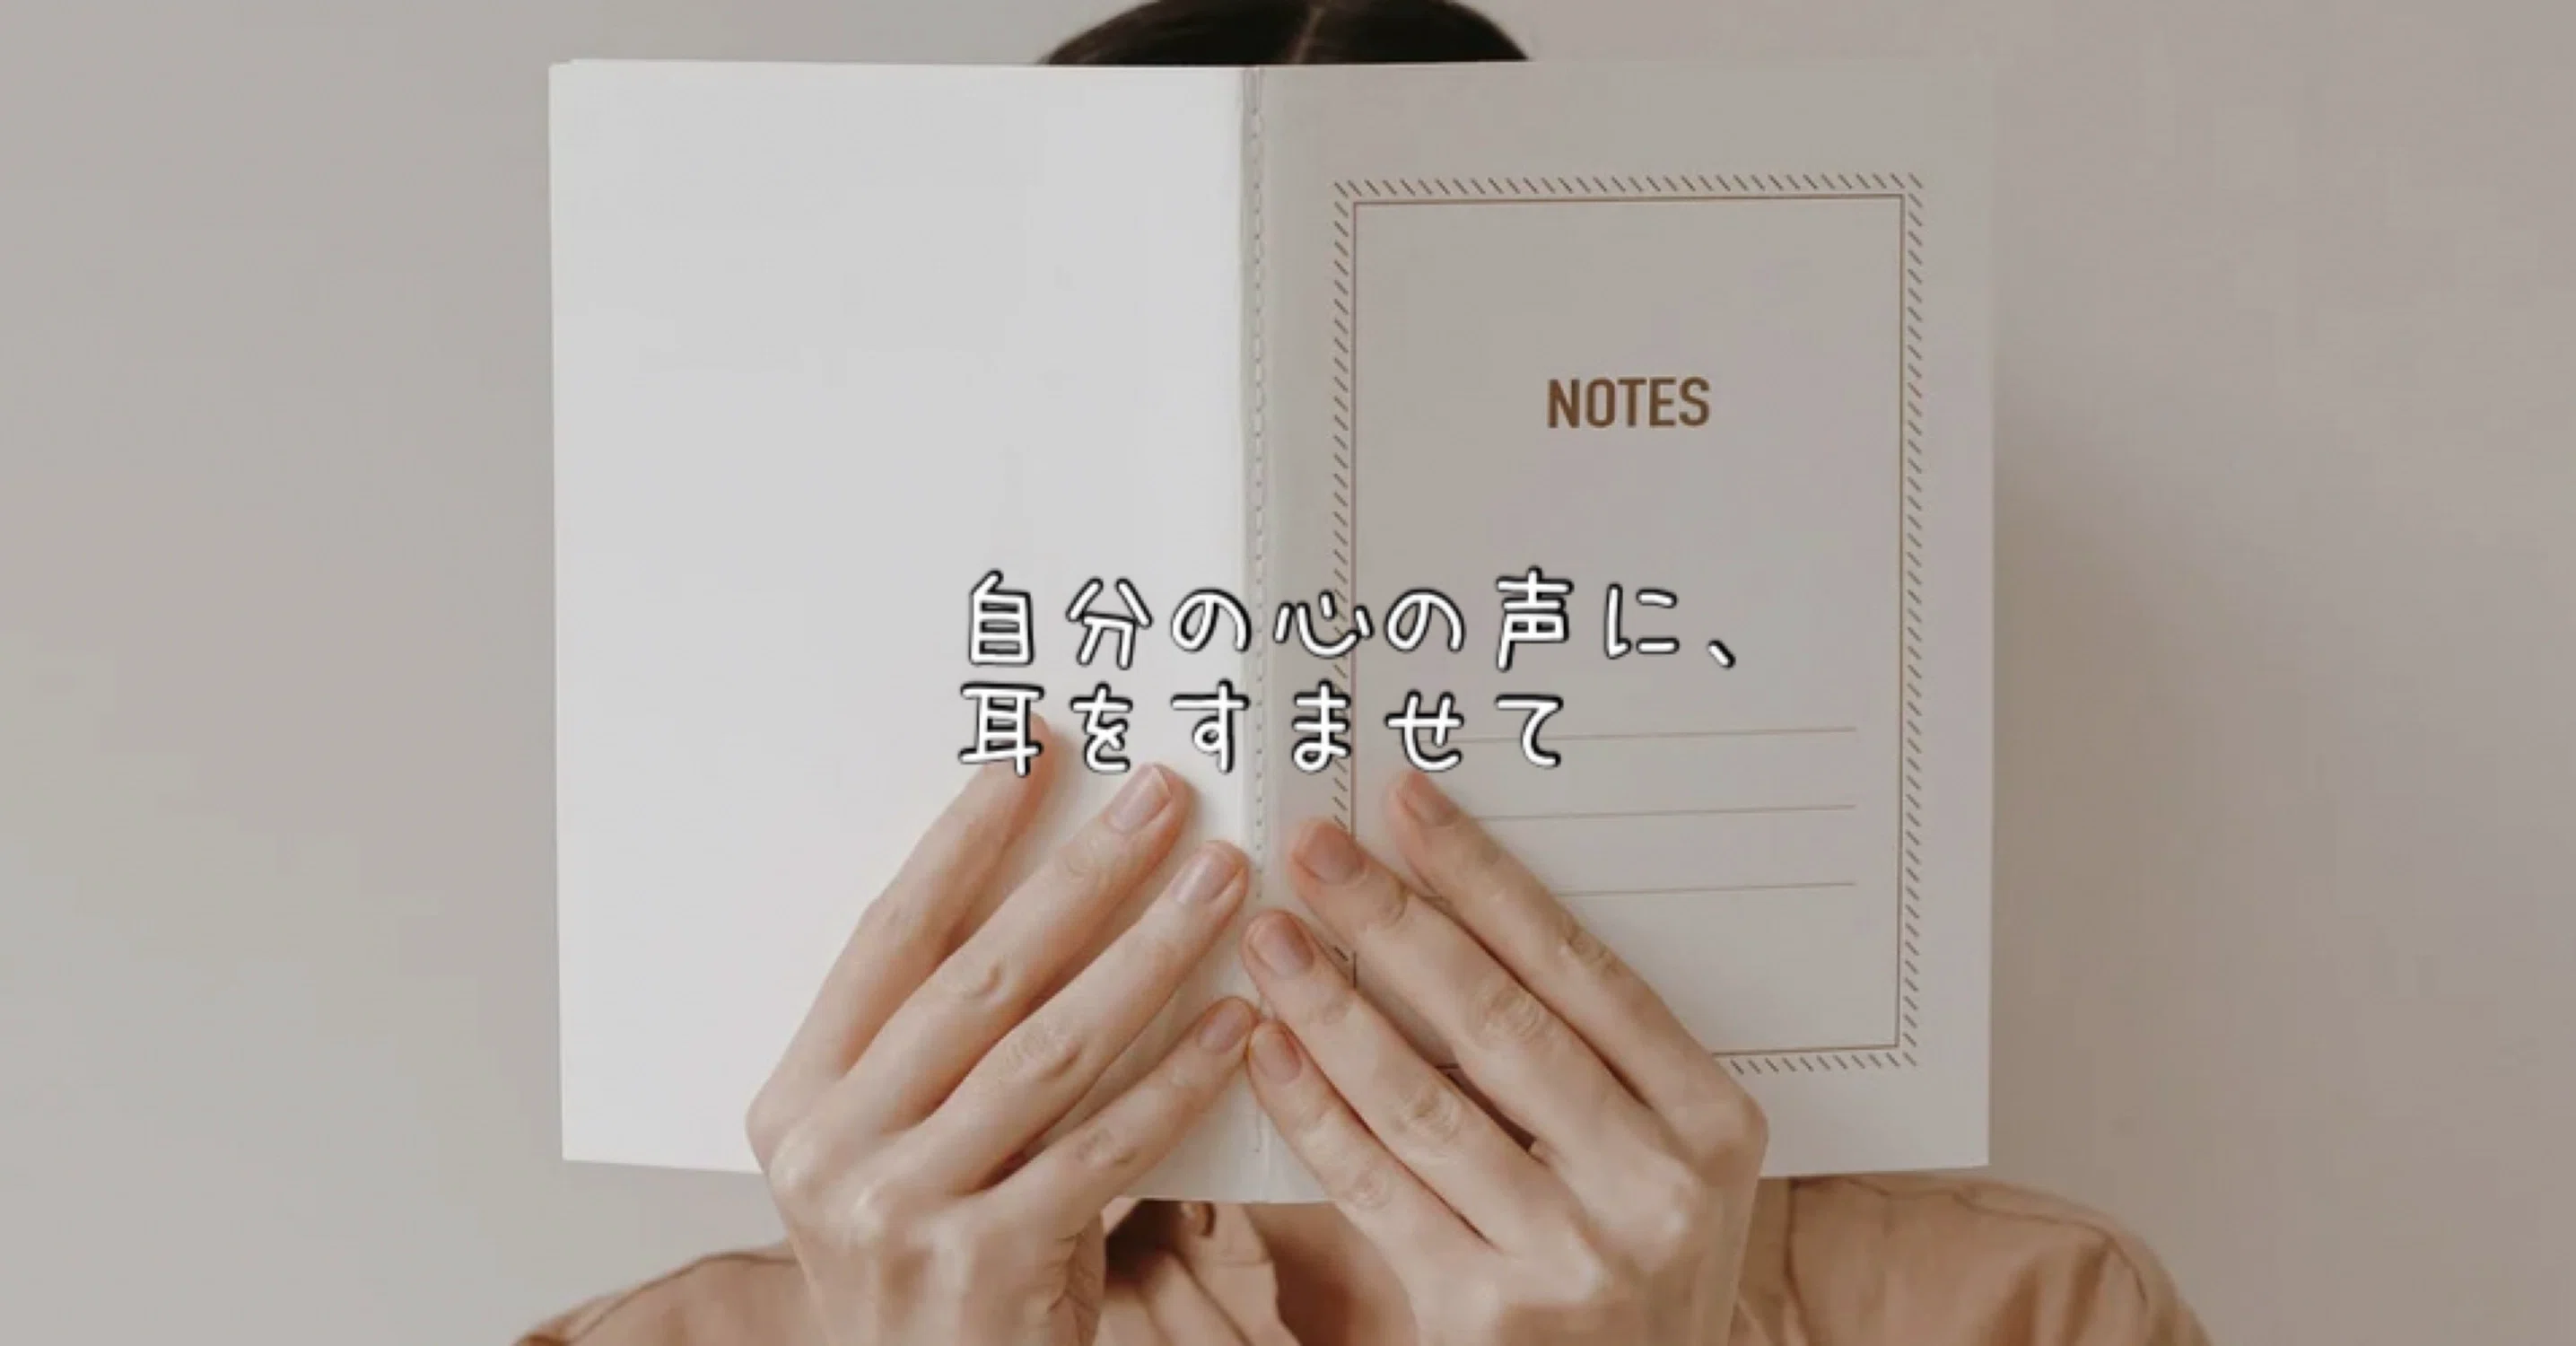 NOTES
自分の心の声に、
耳をすませて